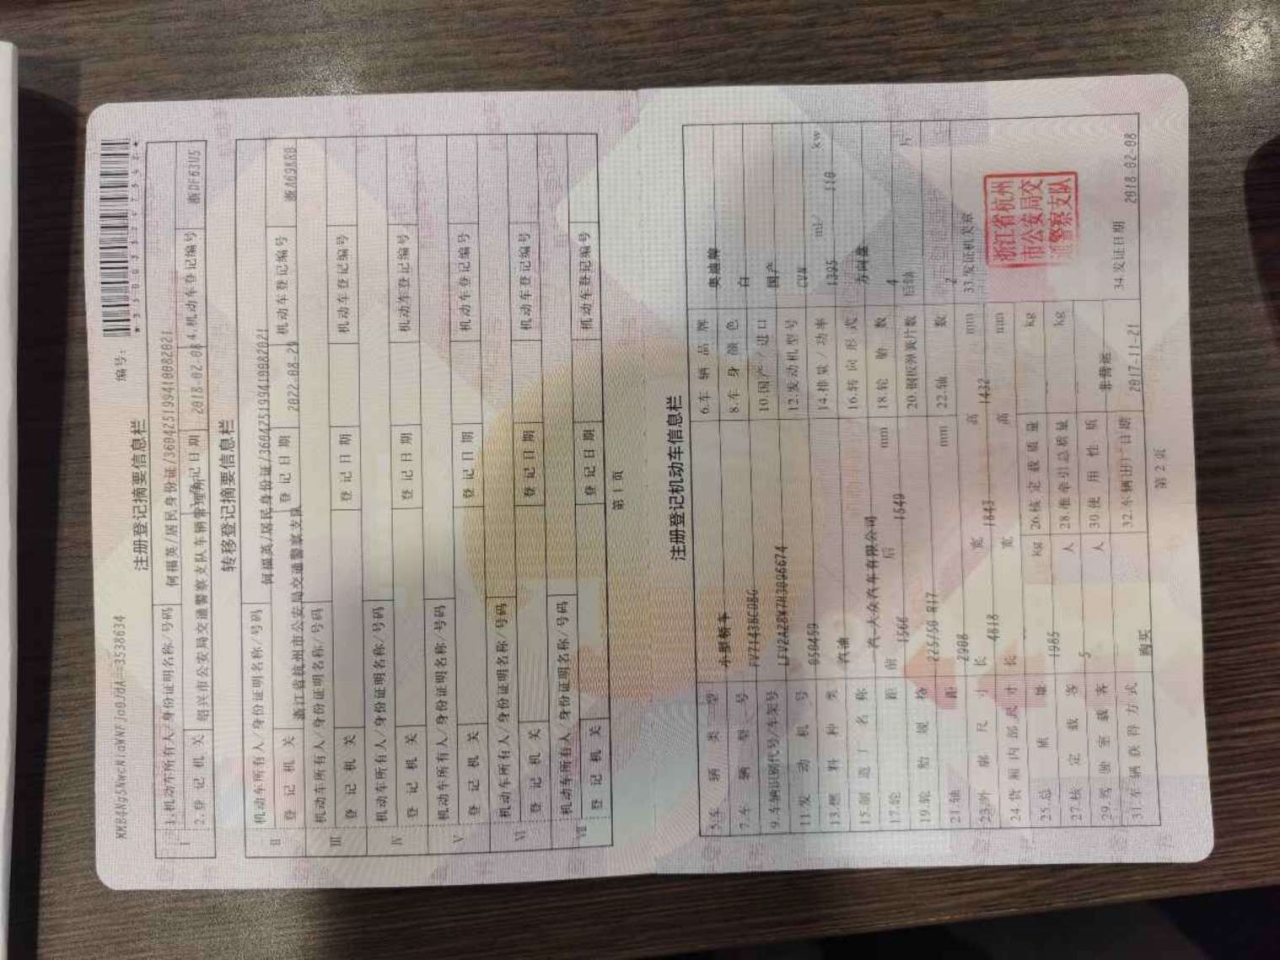 KKB4Ng5NwcNlaWNFJo0JdA=3538634
编号:
注册登记摘要信息栏
I 1.机动车所有人/身份证明名称/号码 何福英/居民身份证/360425199410082021
2.登记机关 绍兴市公安局交通警察支队车辆管理所 3.登记日期 2018-02-08 4.机动车登记编号 浙DF63U5
转移登记摘要信息栏
II 机动车所有人/身份证明名称/号码 何福英/居民身份证/360425199410082021
登记机关 浙江省杭州市公安局交通警察支队 登记日期 2022-08-29 机动车登记编号
III 机动车所有人/身份证明名称/号码
登记机关 登记日期 机动车登记编号
IV 机动车所有人/身份证明名称/号码
登记机关 登记日期 机动车登记编号
V 机动车所有人/身份证明名称/号码
登记机关 登记日期 机动车登记编号
VI 机动车所有人/身份证明名称/号码
登记机关 登记日期 机动车登记编号
VII 机动车所有人/身份证明名称/号码
登记机关 登记日期 机动车登记编号
第 1 页
注册登记机动车信息栏
5.车辆类型 小型轿车 6.车辆品牌 奥迪牌
7.车辆型号 8.车身颜色 白
9.车辆识别代号/车架号 10.国产/进口 国产
11.发动机号 12.发动机型号
13.燃料种类 汽油 14.排量/功率 1395 ml/ 110 kw
15.制造厂名称 一汽-大众汽车有限公司 16.转向形式 方向盘
17.轮距 前 1566 后 1549 mm 18.轮胎数 4
19.轮胎规格 225/50 R17 20.钢板弹簧片数 后轴 片
21.轴距 2908 mm 22.轴数 2
23.外廓尺寸 长 4818 宽 1843 高 1432 mm 33.发证机关章
浙江省杭州
市公安局交
通警察支队
24.货厢内部尺寸 长 宽 高 mm
25.总质量 1985 kg 26.核定载质量 kg
27.核定载客 5 人 28.准牵引总质量 kg
29.驾驶室载客 人 30.使用性质 非营运
31.车辆获得方式 购买 32.车辆出厂日期 2017-11-21 34.发证日期 2018-02-08
第 2 页